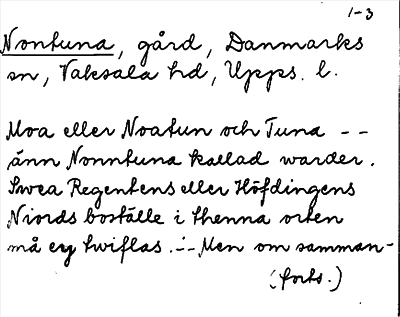 1-3
Nontuna, gård, Danmarks
sn, Vaksala hd, Upps. l.
Moa eller Noatun och Tuna - -
änn Nonntuna kallad warder.
Swea Regentens eller Höfdingens
Niords boställe i thenna orten
må ey twiflas. -- Men om samman-
(forts.)